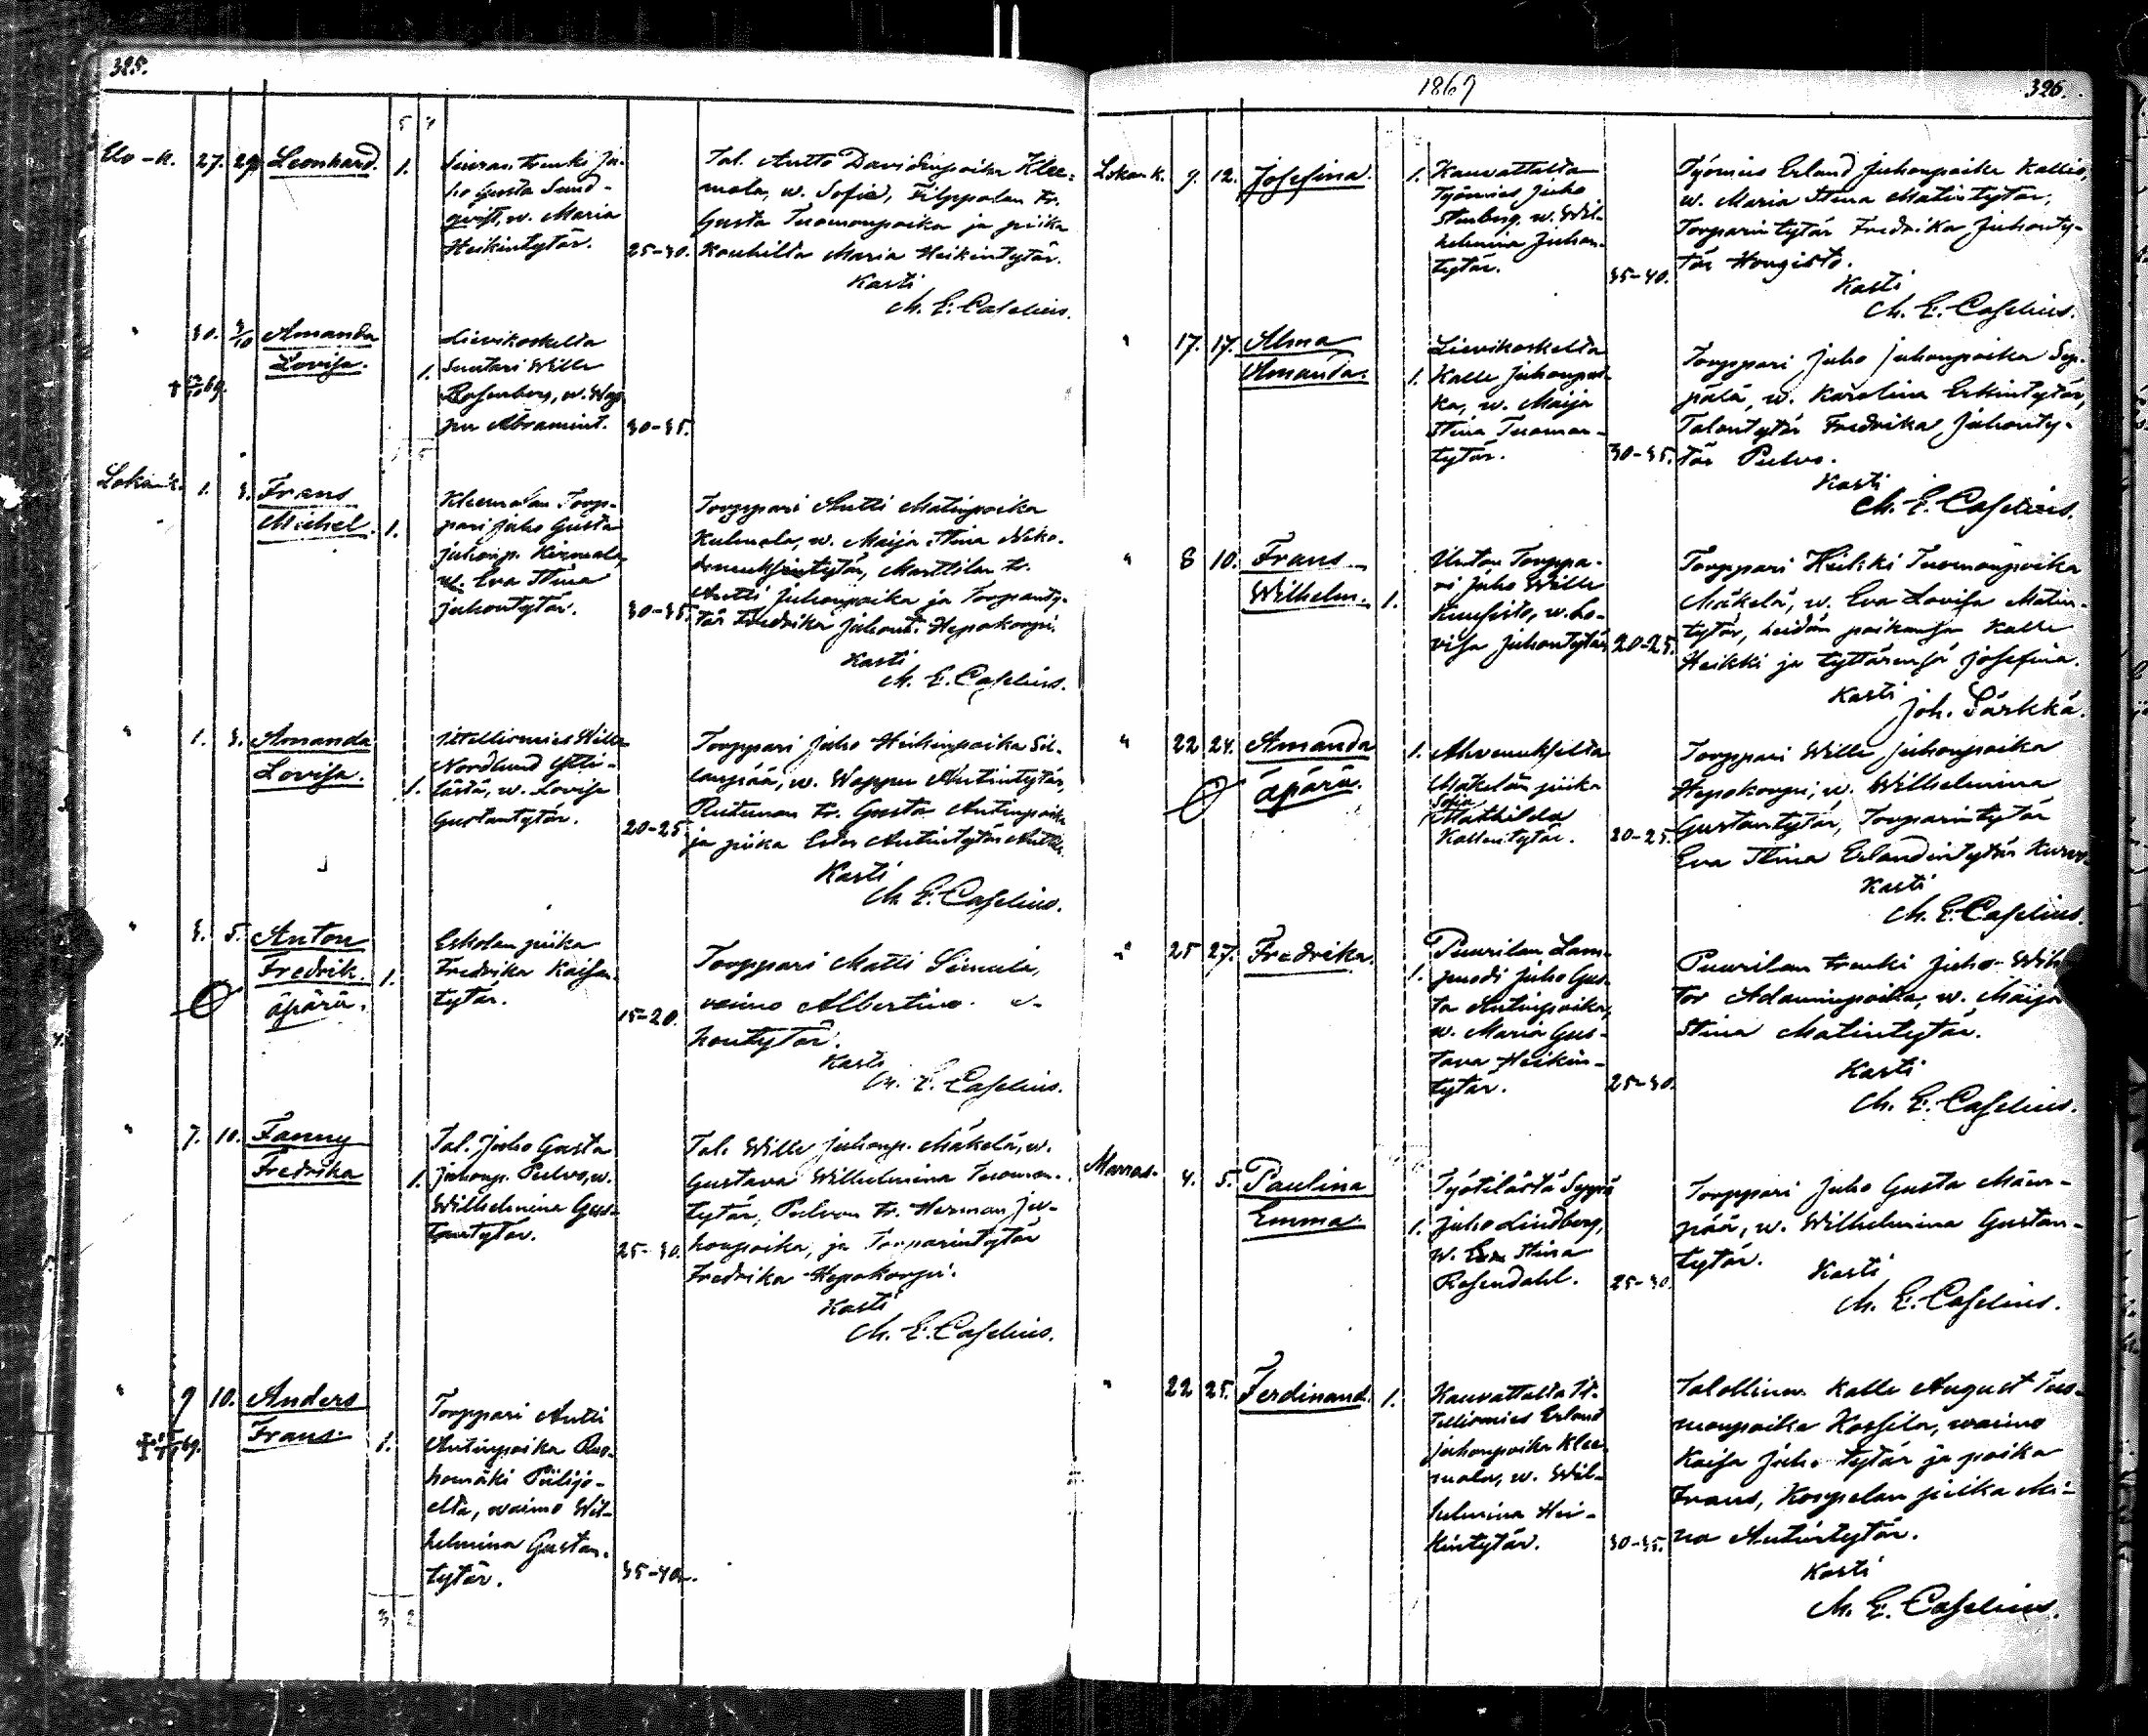 325.
Elo-k. 27. 29 Leonhard. 1. Seuras. trenki Ju-
ho Gusta Sund-
qvist, w. Maria
Heikintytär. 25-30.
Tal. Antto Davidinpoika Klee-
mola, w. Sofia, Filppolan tr.
Gusta Tuomonpoika ja piika
Kouhilta Maria Heikintytär.
Kasti
M. E. Caselius.
" 30. 3/10 Amanda
Lovisa. 1.
Lievikoskelta
Suutari Wille
Rosenberg, w. Wap-
pu Abramint. 30-35.
Loka-k. 1. 3. Frans
Michel. 1.
Kleemolan Torp-
pari Juho Gusta
Juhonp.
w. Eva Stina
Juhontytär. 30-35.
Torppari Antti Matinpoika
Kulmala, w. Maija Stina Niko-
demuksentytär, Marttilan tr.
Antti Juhonpoika ja Torparity-
tär Fredrika Juhont. Hepokorpi.
Kasti
M. E. Caselius.
" 1. 3. Amanda
Lovisa. 1.
Itsellismies Wille
Nordlund
w. Lovisa
Gustantytär. 20-25
Torppari Juho Heikinpoika Sil-
lanpää, w. Wappu Antintytär,
tr. Gusta Antinpoika
ja piika Ester Antintytär
Kasti
M. E. Caselius.
" 3. 5. Anton
Fredrik. 1.
äpärä.
Eskolan piika
Fredrika Kaisan-
tytär. 15-20.
Torppari Matti Simula,
vaimo Albertina
hontytär.
Kasti
M. E. Caselius.
" 7. 10. Fanny
Fredrika 1.
Tal. Juho Gusta
Juhonp. Pulvo, w.
Wilhelmina Gus-
tantytär. 25-30.
Tal. Wille Juhonp. Mäkelä, w.
Gustava Wilhelmina Tuomon-
tytär, Pulvon tr. Herman Ju-
honpoika, ja Torparintytär
Fredrika Hepokorpi.
Kasti
M. E. Caselius.
" 9 10. Anders
Frans. 1.
Torppari Antti
Antinpoika Ruo-
homäki Piilijo-
elta, waimo Wil-
helmina Gustan-
tytär. 35-40.
3 2
1867
326.
Loka-k. 9. 12. Josefina. 1. Kauvattalta
Työmies Juho
Stenberg, w. Wil-
helmina Juhon-
tytär. 35-40.
Työmies Erland Juhonpoika Kallio,
w. Maria Stina Matintytär,
Torparintytär Fredrika Juhonty-
tär Hongisto.
Kasti
M. E. Caselius.
" 17. 17. Alma
Amanda. 1.
Lievikoskelta
Kalle Juhonpoi-
ka, w. Maija
Stina Tuomon-
tytär. 30-35.
Torppari Juho Juhonpoika Sep-
pälä, w. Karolina Erkintytär,
Talontytär Fredrika Juhonty-
tär Pulvo.
Kasti
M. E. Caselius.
" 8 10. Frans
Wilhelm. 1.
Torppa-
ri Juho Wille
Kuusisto, w. Lo-
visa Juhontytär 20-25.
Torppari Heikki Tuomonpoika
Mäkelä, w. Eva Lovisa Matin-
tytär, heidän poikansa Kalle
Heikki ja tyttärensä Josefina.
Kasti
Joh. Särkkä.
" 22 24. Amanda 1.
äpärä.
Ahvenukselta
Mäkelän piika
Sofia
Mathilda
Kallentytär. 20-25.
Torppari Wille Juhonpoika
Hepokorpi, w. Wilhelmina
Gustantytär, Torparintytär
Eva Stina Erlandintytär
Kasti
M. E. Caselius.
" 25 27. Fredrika. 1.
Puurilan Lam-
puodi Juho Gus-
ta Antinpoika,
w. Maria Gus-
tava Heikin-
tytär. 25-30.
Puurilan trenki Juho Wih-
tor Adaminpoika, w. Maija
Stina Matintytär.
Kasti
M. E. Caselius.
Marras. 4. 5. Paulina
Emma. 1.
Työtilästä Seppä
Juho Lindberg,
w. Eva Stina
Rosendahl. 25-30.
Torppari Juho Gusta Mäen-
pää, w. Wilhelmina Gustan-
tytär.
Kasti
M. E. Caselius.
" 22 25. Ferdinand. 1.
Kauvattalta It-
sellismies Erland
Juhonpoika Klee-
mola, w. Wil-
helmina Hei-
kintytär. 30-35.
Talollinen Kalle August Tuo-
monpoika Kossila, waimo
Kaisa Juho tytär ja poika
Frans, Korpelan piika Mi-
na Antintytär.
Kasti
M. E. Caselius.